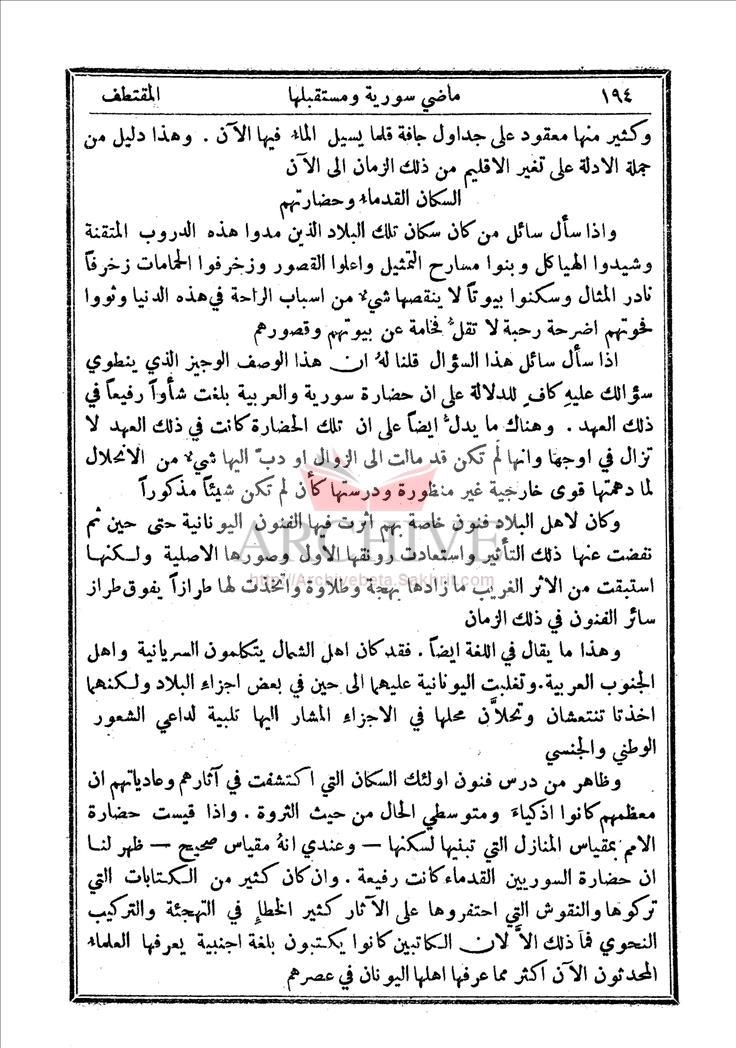 ١٩٤ ماضي سورية ومستقبلها المقتطف
وكثير منها معقود على جداول جافة قلما يسيل الماء فيها الآن . وهذا دليل من
جملة الادلة على تغير الاقليم من ذلك الزمان الى الآن
السكان القدماء وحضارتهم
واذا سأل سائل من كان سكان تلك البلاد الذين مدوا هذه الدروب المتقنة
وشيدوا الهياكل وبنوا مسارح التمثيل واعلوا القصور وزخرفوا الحمامات زخرفاً
نادر المثال وسكنوا بيوتاً لا ينقصها شيء من اسباب الراحة في هذه الدنيا وثووا
فحوتهم اضرحة رحبة لا تقلُّ فخامة عن بيوتهم وقصورهم
اذا سأل سائل هذا السؤال قلنا لهُ ان هذا الوصف الوجيز الذي ينطوي
سؤالك عليهِ كافٍ للدلالة على ان حضارة سورية والعربية بلغت شأواً رفيعاً في
ذلك العهد . وهناك ما يدلُّ ايضاً على ان تلك الحضارة كانت في ذلك العهد لا
تزال في اوجها وانها لم تكن قد مالت الى الزوال او دبَّ اليها شيء من الانحلال
لما دهمتها قوى خارجية غير منظورة ودرستها كأن لم تكن شيئاً مذكوراً
وكان لاهل البلاد فنون خاصة بهم اثرت فيها الفنون اليونانية حتى حين ثم
نفضت عنها ذلك التأثير واستعادت رونقها الاول وصورها الاصلية ولكنها
استبقت من الاثر الغريب ما زادها بهجة وطلاوة واتخذت لها طرازاً يفوق طراز
سائر الفنون في ذلك الزمان
وهذا ما يقال في اللغة ايضاً . فقد كان اهل الشمال يتكلمون السريانية واهل
الجنوب العربية . وتغلبت اليونانية عليهما الى حين في بعض اجزاء البلاد ولكنهما
اخذتا تنتعشان وتحلاَّن محلها في الاجزاء المشار اليها تلبية لداعي الشعور
الوطني والجنسي
وظاهر من درس فنون اولئك السكان التي اكتشفت في آثارهم وعادياتهم ان
معظمهم كانوا اذكياء ومتوسطي الحال من حيث الثروة . واذا قيست حضارة
الامم بمقياس المنازل التي تبنيها لسكنها — وعندي انهُ مقياس صحيح — ظهر لنا
ان حضارة السوريين القدماء كانت رفيعة . وان كان كثير من الكتابات التي
تركوها والنقوش التي احتفروها على الآثار كثير الخطإِ في التهجئة والتركيب
النحوي فما ذلك الاَّ لان الكاتبين كانوا يكتبون بلغة اجنبية يعرفها العلماء
المحدثون الآن اكثر مما عرفها اهلها اليونان في عصرهم
ARCHIVE
http://Archivebeta.Sakhrit.com